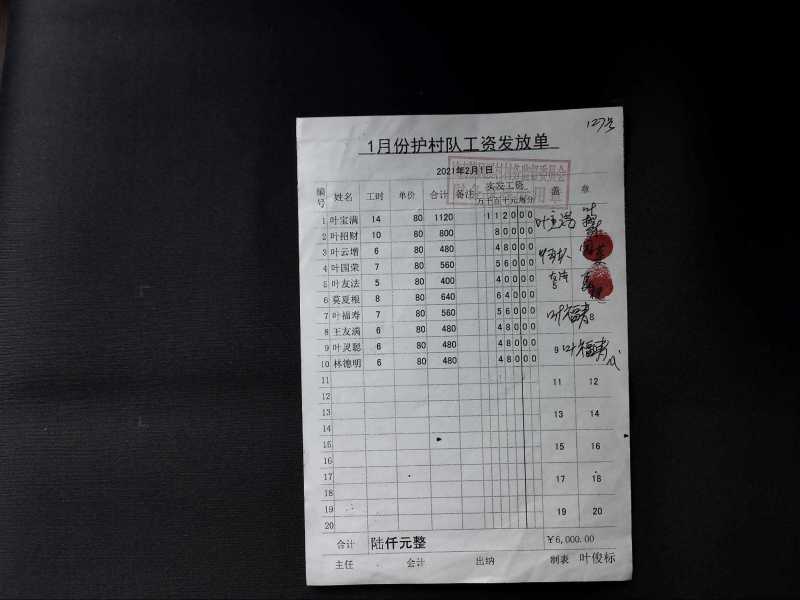 127号
1月份护村队工资发放单
2021年2月1日
编号 姓名 工时 单价 合计 备注 实发工资 盖 章
万 千 百 十 元 角 分
1 叶宝满 14 80 1120 1 1 2 0 0 0
2 叶招财 10 80 800 8 0 0 0 0
3 叶云增 6 80 480 4 8 0 0 0
4 叶国荣 7 80 560 5 6 0 0 0
5 叶友法 5 80 400 4 0 0 0 0
6 莫夏根 8 80 640 6 4 0 0 0
7 叶福寿 7 80 560 5 6 0 0 0 叶福寿 8
8 王友满 6 80 480 4 8 0 0 0
9 叶灵聪 6 80 480 4 8 0 0 0 9 叶福寿
10 林德明 6 80 480 4 8 0 0 0
11 11 12
12
13 13 14
14
15 15 16
16
17 17 18
18
19 19 20
20
合计 陆仟元整 ¥6,000.00
主任 会计 出纳 制表 叶俊标